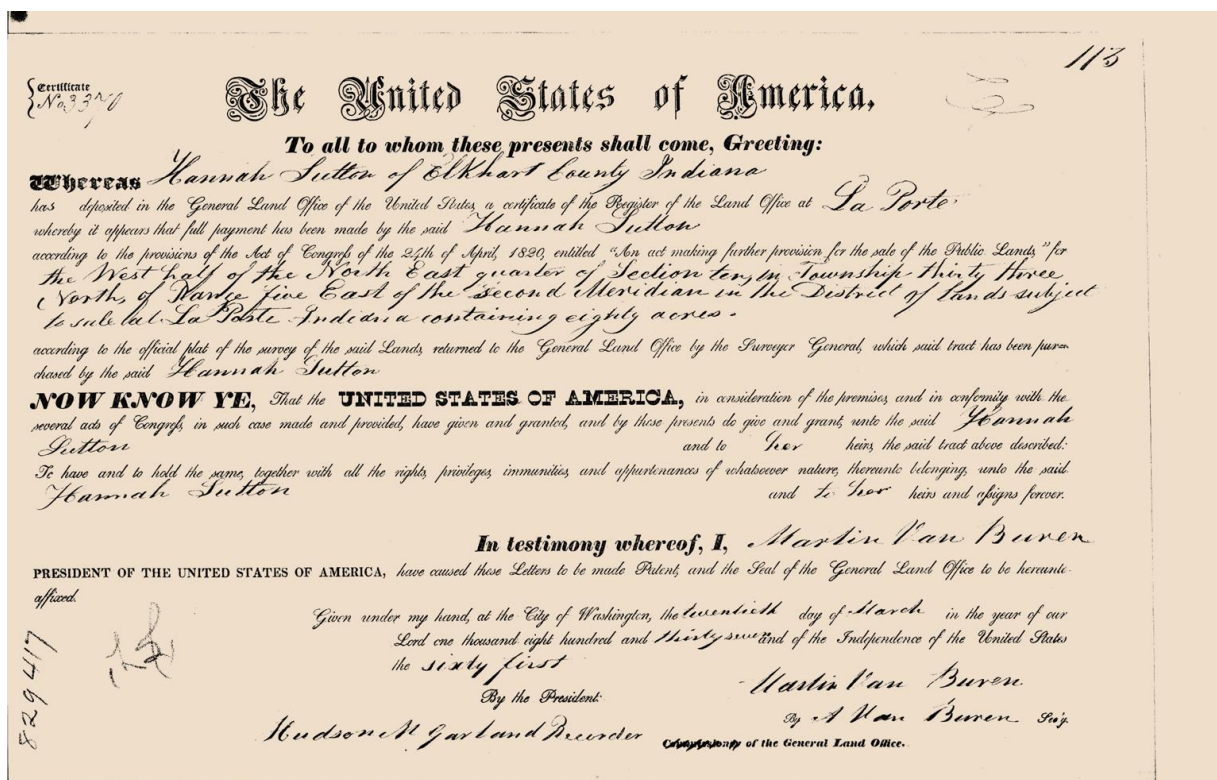 113
Certificate
No 3370
The United States of America,
To all to whom these presents shall come, Greeting:
Whereas Hannah Sutton of Elkhart County Indiana
has deposited in the General Land Office of the United States, a certificate of the Register of the Land Office at La Porte
whereby it appears that full payment has been made by the said Hannah Sutton
according to the provisions of the Act of Congress of the 24th of April, 1820, entitled "An act making further provision for the sale of the Public Lands," for
the West half of the North East quarter of Section ten, in Township thirty three
North, of Range five East of the second Meridian in the District of lands subject
to sale at La Porte Indiana containing eighty acres.
according to the official plat of the survey of the said Lands, returned to the General Land Office by the Surveyor General, which said tract has been pur=
chased by the said Hannah Sutton
NOW KNOW YE, That the UNITED STATES OF AMERICA, in consideration of the premises, and in conformity with the
several acts of Congress, in such case made and provided, have given and granted, and by these presents do give and grant, unto the said Hannah
Sutton and to her heirs, the said tract above described:
To have and to hold the same, together with all the rights, privileges, immunities, and appurtenances of whatsoever nature, thereunto belonging, unto the said
Hannah Sutton and to her heirs and assigns forever.
In testimony whereof, I, Martin Van Buren
PRESIDENT OF THE UNITED STATES OF AMERICA, have caused these Letters to be made Patent, and the Seal of the General Land Office to be hereunto
affixed.
Given under my hand, at the City of Washington, the twentieth day of March in the year of our
Lord one thousand eight hundred and thirty seven and of the Independence of the United States
the sixty first
By the President: Martin Van Buren
By A Van Buren Sec'y.
Hudson M Garland Recorder of the General Land Office.
829417